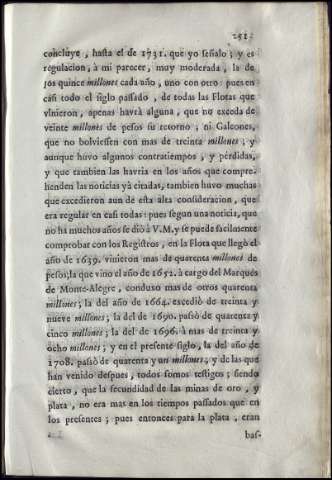 251.
concluye, hasta el de 1731. que yo señalo; y es
regulacion, à mi parecer, muy moderada, la de
los quince millones cada año, uno con otro: pues en
casi todo el siglo passado, de todas las Flotas que
vinieron, apenas havrà alguna, que no exceda de
veinte millones de pesos su retorno; ni Galeones,
que no bolviessen con mas de treinta millones; y
aunque huvo algunos contratiempos, y pérdidas,
y que tambien las havria en los años que compre-
henden las noticias yà citadas, tambien huvo muchas
que excedieron aun de esta alta consideracion, que
era regular en casi todas: pues segun una noticia, que
no ha muchos años se diò à V.M. y se puede facilmente
comprobar con los Registros, en la Flota que llegò el
año de 1639. vinieron mas de quarenta millones de
pesos; la que vino el año de 1652. à cargo del Marquès
de Monte-Alegre, conduxo mas de otros quarenta
millones; la del año de 1664. excediò de treinta y
nueve millones; la del de 1690. passò de quarenta y
cinco millones; la del de 1696. à mas de treinta y
ocho millones; y en el presente siglo, la del año de
1708. passò de quarenta y un millones, y de las que
han venido despues, todos somos testigos; siendo
cierto, que la fecundidad de las minas de oro, y
plata, no era mas en los tiempos passados que en
los presentes; pues entonces para la plata, eran
bas-